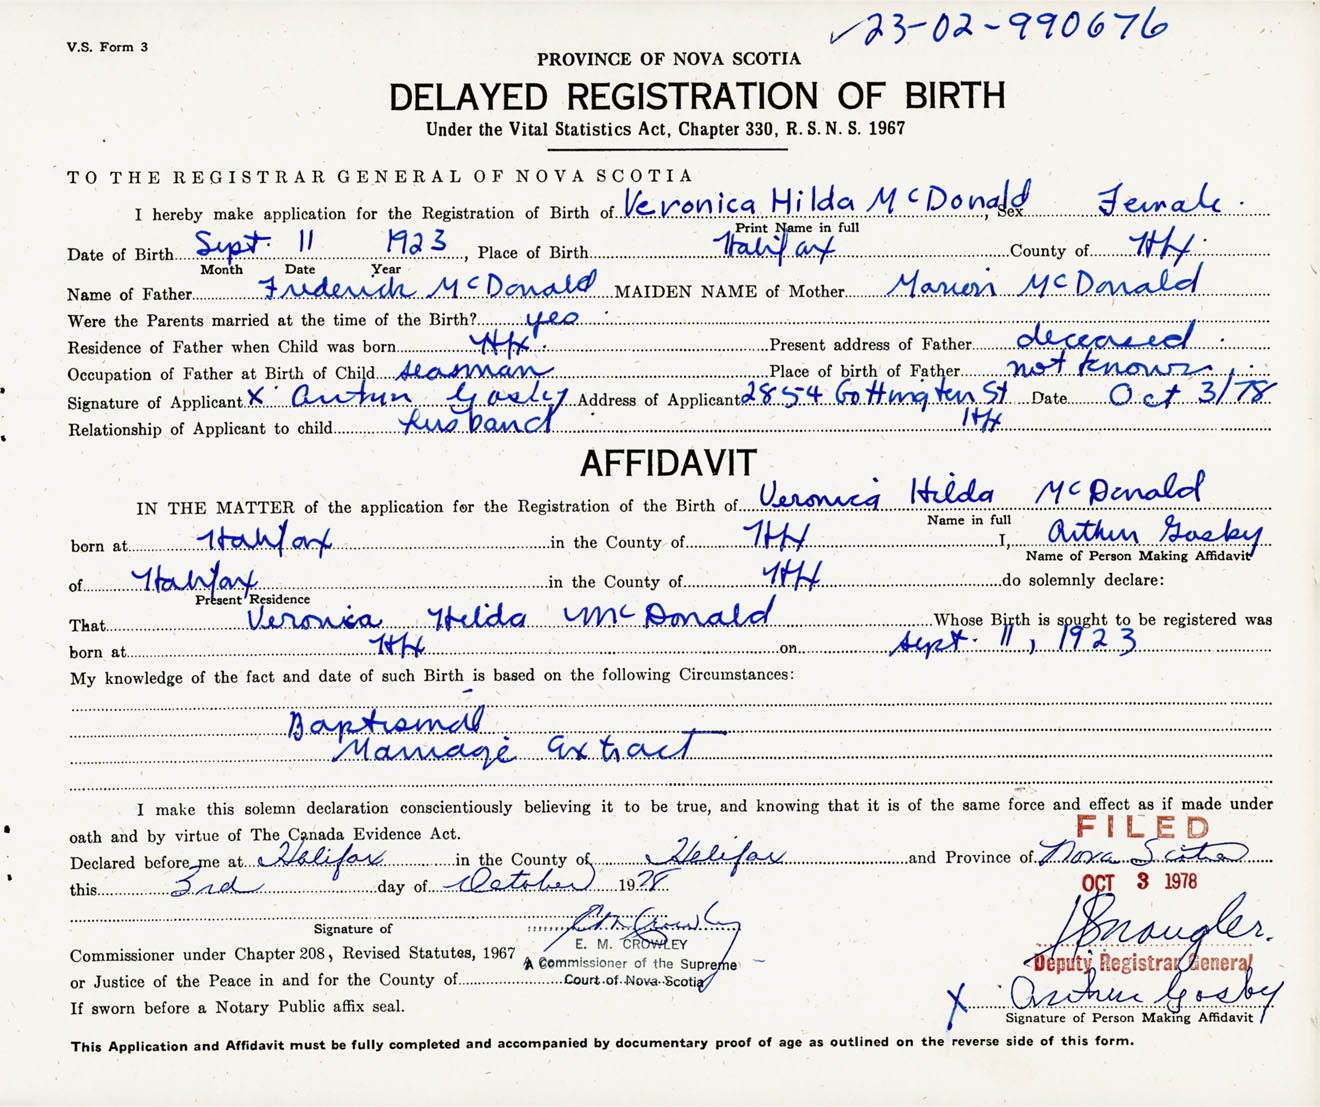 23-02-990676
V.S. Form 3
PROVINCE OF NOVA SCOTIA
DELAYED REGISTRATION OF BIRTH
Under the Vital Statistics Act, Chapter 330, R. S. N. S. 1967
TO THE REGISTRAR GENERAL OF NOVA SCOTIA
I hereby make application for the Registration of Birth of Veronica Hilda McDonald, Sex Female.
Print Name in full
Date of Birth Sept. 11 1923, Place of Birth Halifax County of Hfx.
Month Date Year
Name of Father Frederick McDonald MAIDEN NAME of Mother Marion McDonald
Were the Parents married at the time of the Birth? yes
Residence of Father when Child was born Hfx. Present address of Father deceased.
Occupation of Father at Birth of Child seaman Place of birth of Father not known
Signature of Applicant X Arthur Gosby Address of Applicant 2854 Gottingten St Date Oct 3/78
Relationship of Applicant to child husband Hfx
AFFIDAVIT
IN THE MATTER of the application for the Registration of the Birth of Veronica Hilda McDonald
Name in full
born at Halifax in the County of Hfx I, Arthur Gosby
Name of Person Making Affidavit
of Halifax in the County of Hfx do solemnly declare:
Present Residence
That Veronica Hilda McDonald Whose Birth is sought to be registered was
born at Hfx on Sept. 11, 1923
My knowledge of the fact and date of such Birth is based on the following Circumstances:
Baptismal
Marriage Extract
I make this solemn declaration conscientiously believing it to be true, and knowing that it is of the same force and effect as if made under
oath and by virtue of The Canada Evidence Act.
FILED
Declared before me at Halifax in the County of Halifax and Province of Nova Scotia
this 3rd day of October 1978
OCT 3 1978
Signature of E M Crowley
E. M. CROWLEY
Commissioner under Chapter 208, Revised Statutes, 1967 A Commissioner of the Supreme
Deputy Registrar General
or Justice of the Peace in and for the County of Court of Nova Scotia
X Arthur Gosby
If sworn before a Notary Public affix seal.
Signature of Person Making Affidavit
This Application and Affidavit must be fully completed and accompanied by documentary proof of age as outlined on the reverse side of this form.